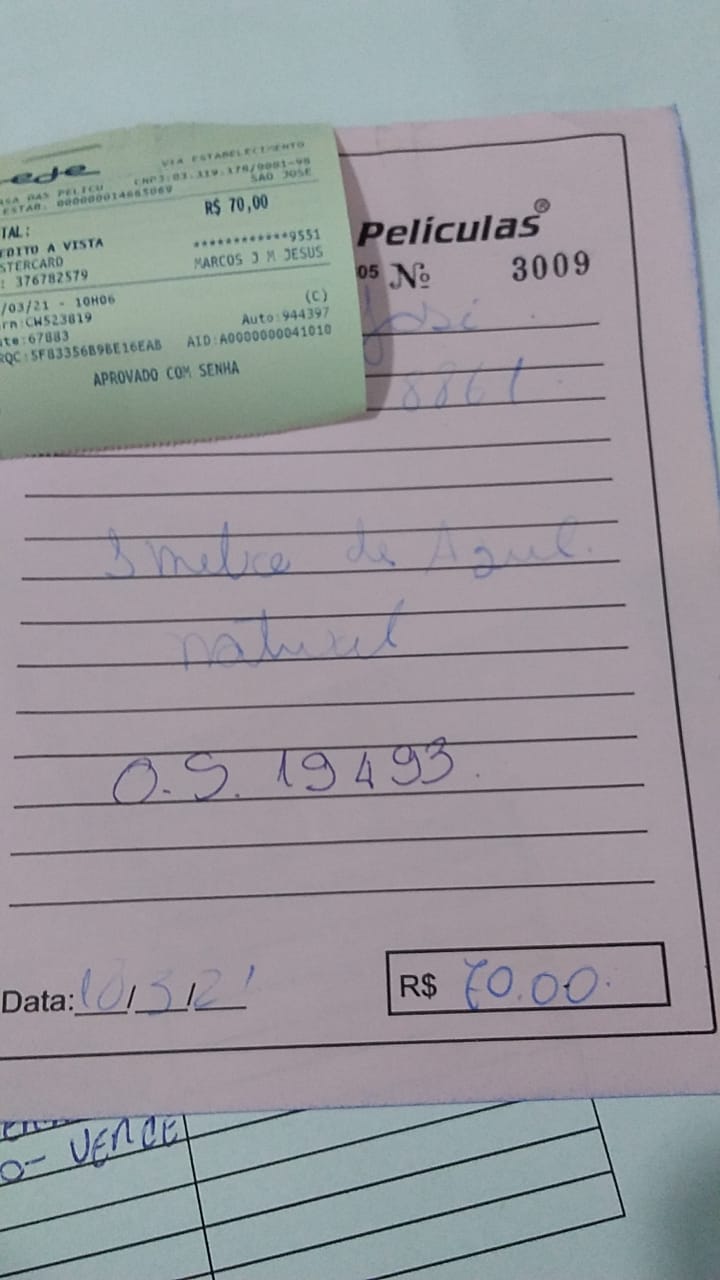 ede
VIA ESTABELECIMENTO
ASA DAS PELICU CNPJ:03.319.378/0001-98
ESTAB: 000000014665069 SAO JOSE
TAL: R$ 70,00
EDITO A VISTA
STERCARD ************9551
: 376782579 MARCOS J M JESUS
/03/21 - 10H06 (C)
rm:CW523819 Auto:944397
te:67883 AID:A0000000041010
RQC:5F83356B9BE16EAB
APROVADO COM SENHA
Películas®
05 Nº 3009
José
8861
de Azul.
natural
O.S. 19493.
Data: 10/3/21
R$ 70.00.
O- VERDE